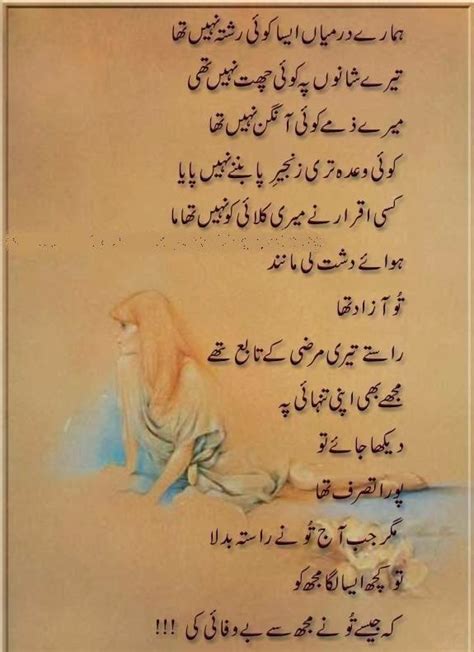 ہمارے درمیاں ایسا کوئی رشتہ نہیں تھا
تیرے شانوں پہ کوئی چھت نہیں تھی
میرے ذمے کوئی آنگن نہیں تھا
کوئی وعدہ تری زنجیرِ پا بننے نہیں پایا
کسی اقرار نے میری کلائی کو نہیں تھاما
ہوائے دشت کی مانند
تُو آزاد تھا
راستے تیری مرضی کے تابع تھے
مجھے بھی اپنی تنہائی پہ
دیکھا جائے تو
پورا تصرف تھا
مگر جب آج تُو نے راستہ بدلا
تو کچھ ایسا لگا مجھ کو
کہ جیسے تُو نے مجھ سے بے وفائی کی !!!